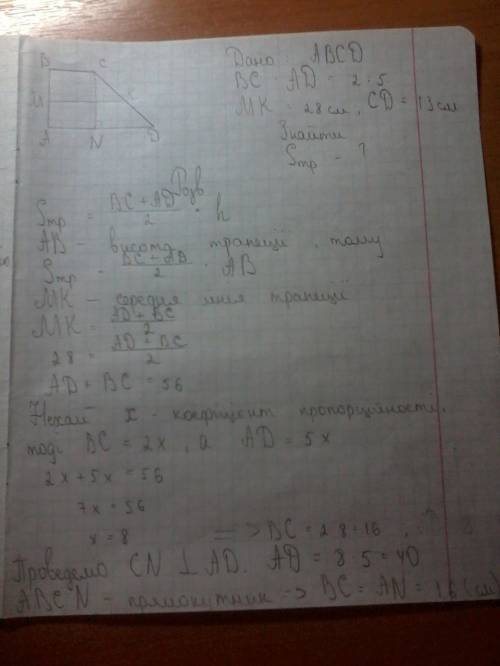 Дано: ABCD
BC : AD = 2 : 5
MK = 28 см, CD = 13 см
Знайти
Sтр - ?
B C
M K
A N D
Розв
Sтр = BC + AD / 2 · h
AB - висота трапеції, тому
Sтр = BC + AD / 2 · AB
MK - середня лінія трапеції
MK = AD + BC / 2
28 = AD + BC / 2
AD + BC = 56
Нехай x - коефіцієнт пропорційності,
тоді BC = 2x, а AD = 5x
2x + 5x = 56
7x = 56
x = 8 => BC = 2·8 = 16
Проведемо CN ⊥ AD. AD = 8·5 = 40
ABCN - прямокутник => BC = AN = 16 (см)